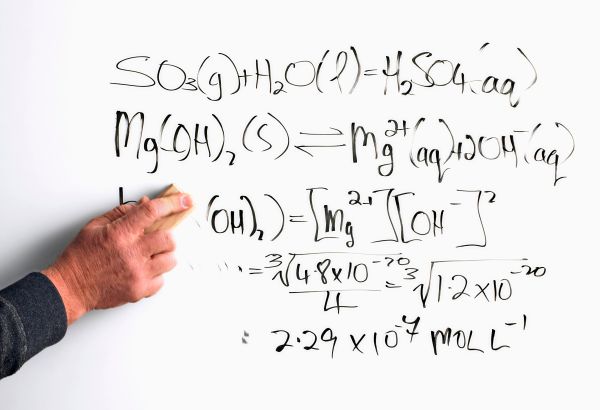 SO₃(g)+H₂O(l)=H₂SO₄(aq)
Mg(OH)₂(s)⇌Mg²⁺(aq)+2OH⁻(aq)
(OH)₂)=[Mg²⁺][OH⁻]²
=³√(4.8×10⁻²⁰/4)=³√1.2×10⁻²⁰
: 2.29×10⁻⁷ MOL L⁻¹